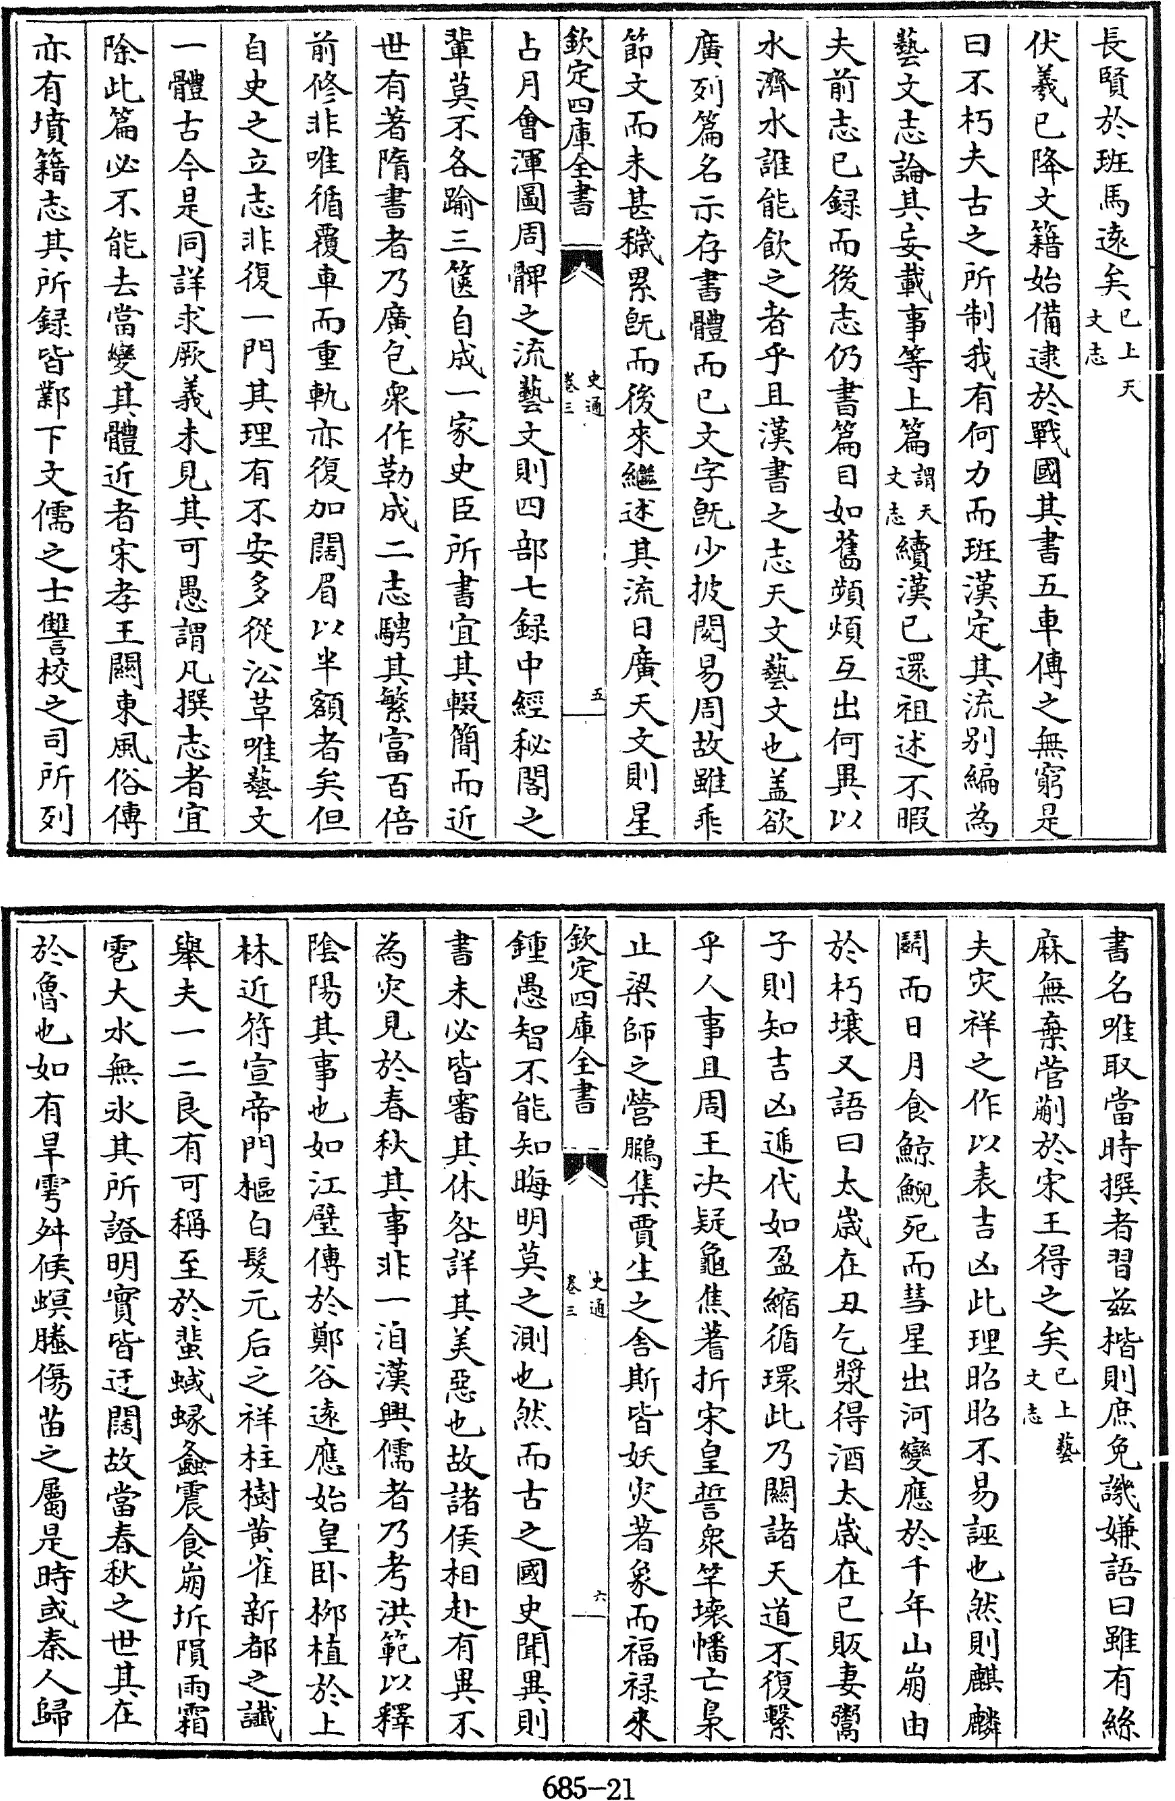 長賢於班馬遠矣已上天文志
伏羲已降文籍始備逮於戰國其書五車傳之無窮是
曰不朽夫古之所制我有何力而班漢定其流別編為
藝文志論其妄載事等上篇謂天文志續漢已還祖述不暇
夫前志已録而後志仍書篇目如舊頻煩互出何異以
水濟水誰能飲之者乎且漢書之志天文藝文也蓋欲
廣列篇名示存書體而已文字旣少披閱易周故雖乖
節文而未甚穢累旣而後來繼述其流日廣天文則星
欽定四庫全書
史通
卷三
五
占月會渾圖周髀之流藝文則四部七録中經秘閣之
輩莫不各踰三篋自成一家史臣所書宜其輟簡而近
世有著隋書者乃廣包衆作勒成二志騁其繁富百倍
前修非唯循覆車而重軌亦復加闊眉以半額者矣但
自史之立志非復一門其理有不安多從沿革唯藝文
一體古今是同詳求厥義未見其可愚謂凡撰志者宜
除此篇必不能去當變其體近者宋孝王關東風俗傳
亦有墳籍志其所録皆鄴下文儒之士讐校之司所列
書名唯取當時撰者習兹楷則庶免譏嫌語曰雖有絲
麻無棄菅蒯於宋王得之矣已上藝文志
夫灾祥之作以表吉凶此理昭昭不易誣也然則麒麟
鬭而日月食鯨鯢死而彗星出河變應於千年山崩由
於朽壤又語曰太歲在丑乞漿得酒太歲在已販妻鬻
子則知吉凶遞代如盈縮循環此乃關諸天道不復繫
乎人事且周王决疑龜焦蓍折宋皇誓衆竿壞幡亡梟
止梁師之營鵩集賈生之舍斯皆妖灾著象而福禄來
欽定四庫全書
史通
卷三
六
鍾愚智不能知晦明莫之測也然而古之國史聞異則
書未必皆審其休咎詳其美惡也故諸侯相赴有異不
為灾見於春秋其事非一洎漢興儒者乃考洪範以釋
陰陽其事也如江璧傳於鄭谷遠應始皇卧栁植於上
林近符宣帝門樞白髮元后之祥柱樹黄雀新都之讖
舉夫一二良有可稱至於蜚蜮蝝螽震食崩坼隕雨霜
雹大水無氷其所證明實皆迂闊故當春秋之世其在
於魯也如有旱雩舛候螟螣傷苗之屬是時或秦人歸
685-21